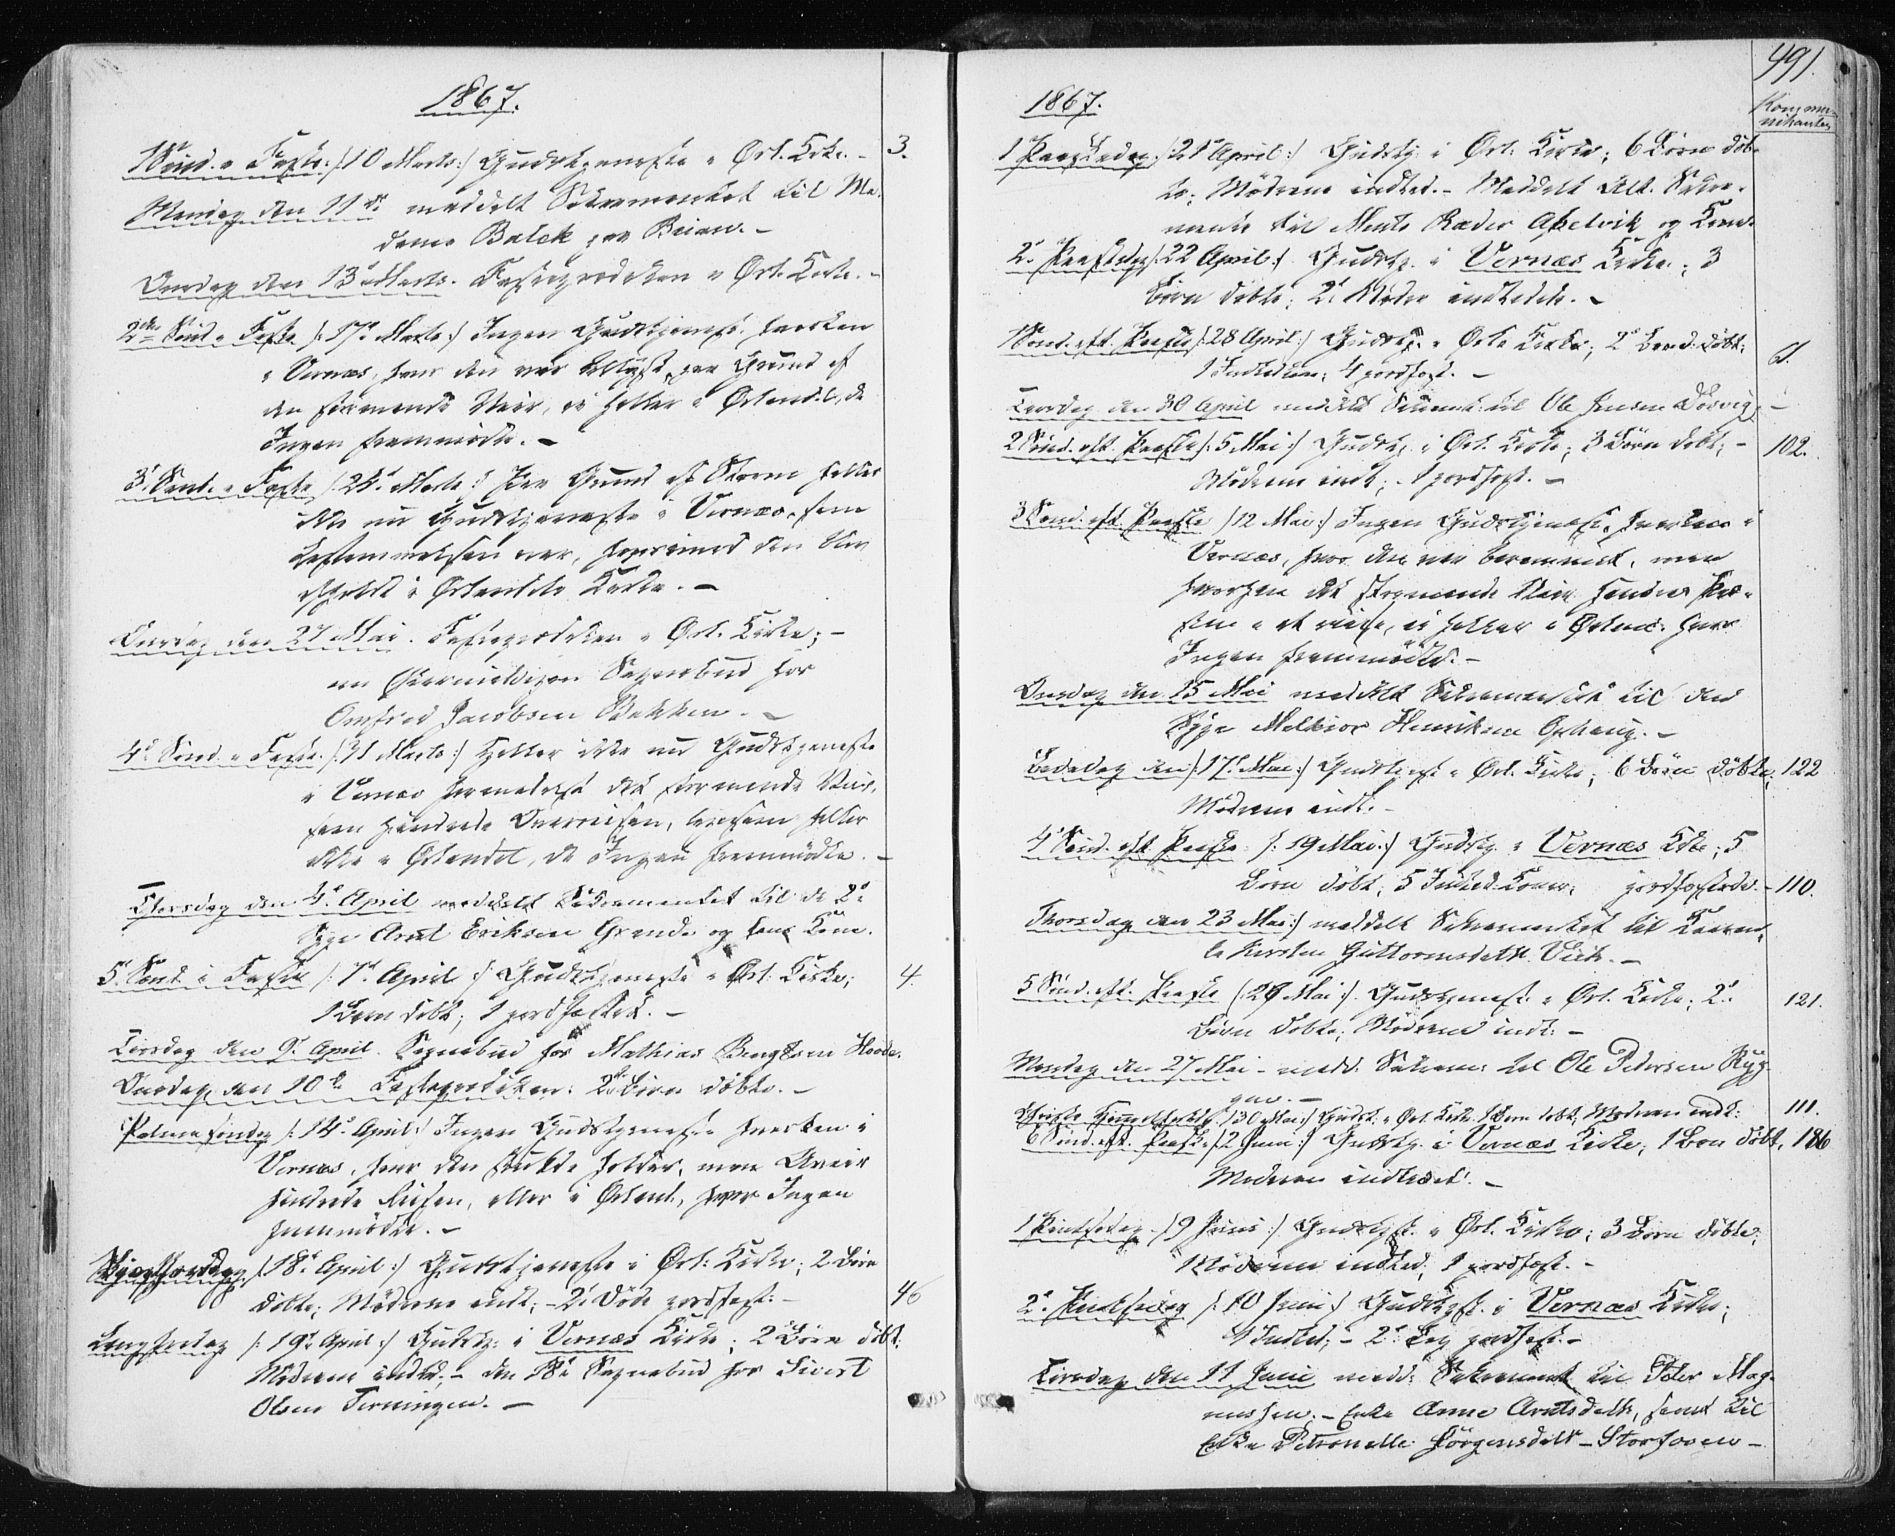 1867.
1 Sønd. i Faste /: 10 Marts :/ Gudstjeneste i Ørl. Kirke. - 3.
Mandag den 11te meddelt Sakramentet til Ma-
dame Balck paa Beian. -
Onsdag den 13 Marts. Fasteprædiken i Ørl. Kirke. -
2den Sønd. i Faste /: 17de Marts :/ Ingen Gudstjenest. hverken
i Vernæs, hvor den var belyst, paa Grund af
den stormende Veir, ei heller i Ørlandet, da
Ingen fremmødte. -
3 Sønd. i Faste /: 24 Marts :/ Paa Grund af Storm heller
ikke nu Gudstjeneste i Vernæs, som
Bestemmelsen var, hvorimod den blev
afholdt i Ørlandets Kirke. -
den 27 Mai. Fasteprædiken i Ørl. Kirke; -
Sognebud for
Jacobsen Bakken. -
4de Sønd. i Faste /: 31 Marts :/ Heller ikke nu Gudstjeneste
i Vernæs formedelst det stormende Veir,
som hindrede Overreisen, ligesom heller
ikke i Ørlandet, da Ingen fremmødte. -
Thorsdag den 4de April meddelt Sakramentet til de 2de
Syge Arnt Eriksen Grande og hans Kone.
5 Sønd. i Faste /: 7de April :/ Gudstjeneste i Ørl. Kirke; 4.
1 Barn døbt; 1 jordfæstet. -
Tirsdag den 9de April. Sognebud for Mathias Bengtsen Hovde.
Onsdag den 10de Fasteprædiken. 2de Børn døbte. -
Palmesøndag /: 14de April :/ Ingen Gudstjeneste hverken i
Vernæs, hvor den skulde holdes, men Uveir
hindrede Reisen, eller i Ørland, hvor Ingen
fremmødte. -
Skjærthorsdag /: 18de April :/ Gudstjeneste i Ørl. Kirke; 2 Børn
døbte; Mødrene indl; - 2de Døde jordfæst. - 46
Langfredag /: 19de April :/ Gudstj. i Vernæs Kirke; 2 Børn døbt;
Mødrene indled; - den 18de Sognebud for Sivert
Olsen Terningen. -
491.
Kommu-
nikanter
1867.
1 Paaskedag /: 21 April :/ Gudstj. i Ørl. Kirke; 6 Børn døb-
te; Mødrene indled. - Meddelt Alt. Sakra-
mente til Ments Rader Apelvik og Kone.
2. Paaskedag /: 22 April :/ Gudstj. i Vernæs Kirke; 3
Børn døbte; 2de Mødre indledede. -
1 Sønd. eft. Paaske /: 28 April :/ Gudstj. i Ørl. Kirke; 2de Børn døbt;
1 Indleden; 4 jordfæst. -
Tirsdag den 30 April meddelt Sakrament til Ole Jensen -
2 Sønd. eft. Paaske /: 5 Mai :/ Gudstj. i Ørl. Kirke; 3 Børn døbt; - 102.
Mødrene indl; - 1 jordfæst. -
3 Sønd. eft. Paaske /: 12 Mai :/ Ingen Gudstjenest. hverken i
Vernæs, hvor den var berammet, men
hvorhen det stormende Veir hindrede Præ-
sten i at reise, ei heller i Ørland. hvor
Ingen fremmødte. -
Onsdag den 15 Mai meddelt Sakramentet til den
Syge Melkior Henriksen Ophaug. -
Bededag den /: 17de Mai :/ Gudstjenest i Ørl. Kirke; 6 Børn døbte; 122
Mødrene indl. -
4 Sønd. eft. Paaske /: 19 Mai :/ Gudstj. i Vernæs Kirke; 5
Børn døbt; 5 Indled. Koner; jordfæstede. - 110.
Thorsdag den 23 Mai :/ meddelt Sakramentet til
Kirsten Guttormsdatt. -
5 Sønd. eft. Paaske /: 26 Mai :/ Gudstjenest i Ørl. Kirke; 2de 121.
Børn døbte; Mødrene indl: -
Mandag den 27 Mai - medd. Sakram. til Ole Pedersen Ryg-
gen. -
Christi Himmelfartsd. /: 30 Mai :/ Gudst. i Ørl. Kirke. 1 Barn døbt; Moderen indl: 111.
6 Sønd. eft. Paaske /: 2 Juni :/ Gudstj. i Vernæs Kirke; 1 Barn døbt, 186
Moderen indledet. -
1 Pintsedag /: 9 Juni :/ Gudstjst. i Ørl. Kirke; 3 Børn døbte;
Mødrene indled; 1 jordfæst. -
2. Pintsedag /: 10 Juni :/ Gudstjst. i Vernæs Kirke;
Indled; - 2de Lig jordfæst. -
Tirsdag den 11 Juni medd: Sakrament til Peter Mag-
nussen. - Enke Anne Arntsdatt, samt til
Enke Petronelle Jörgensdatt - Storfosen -